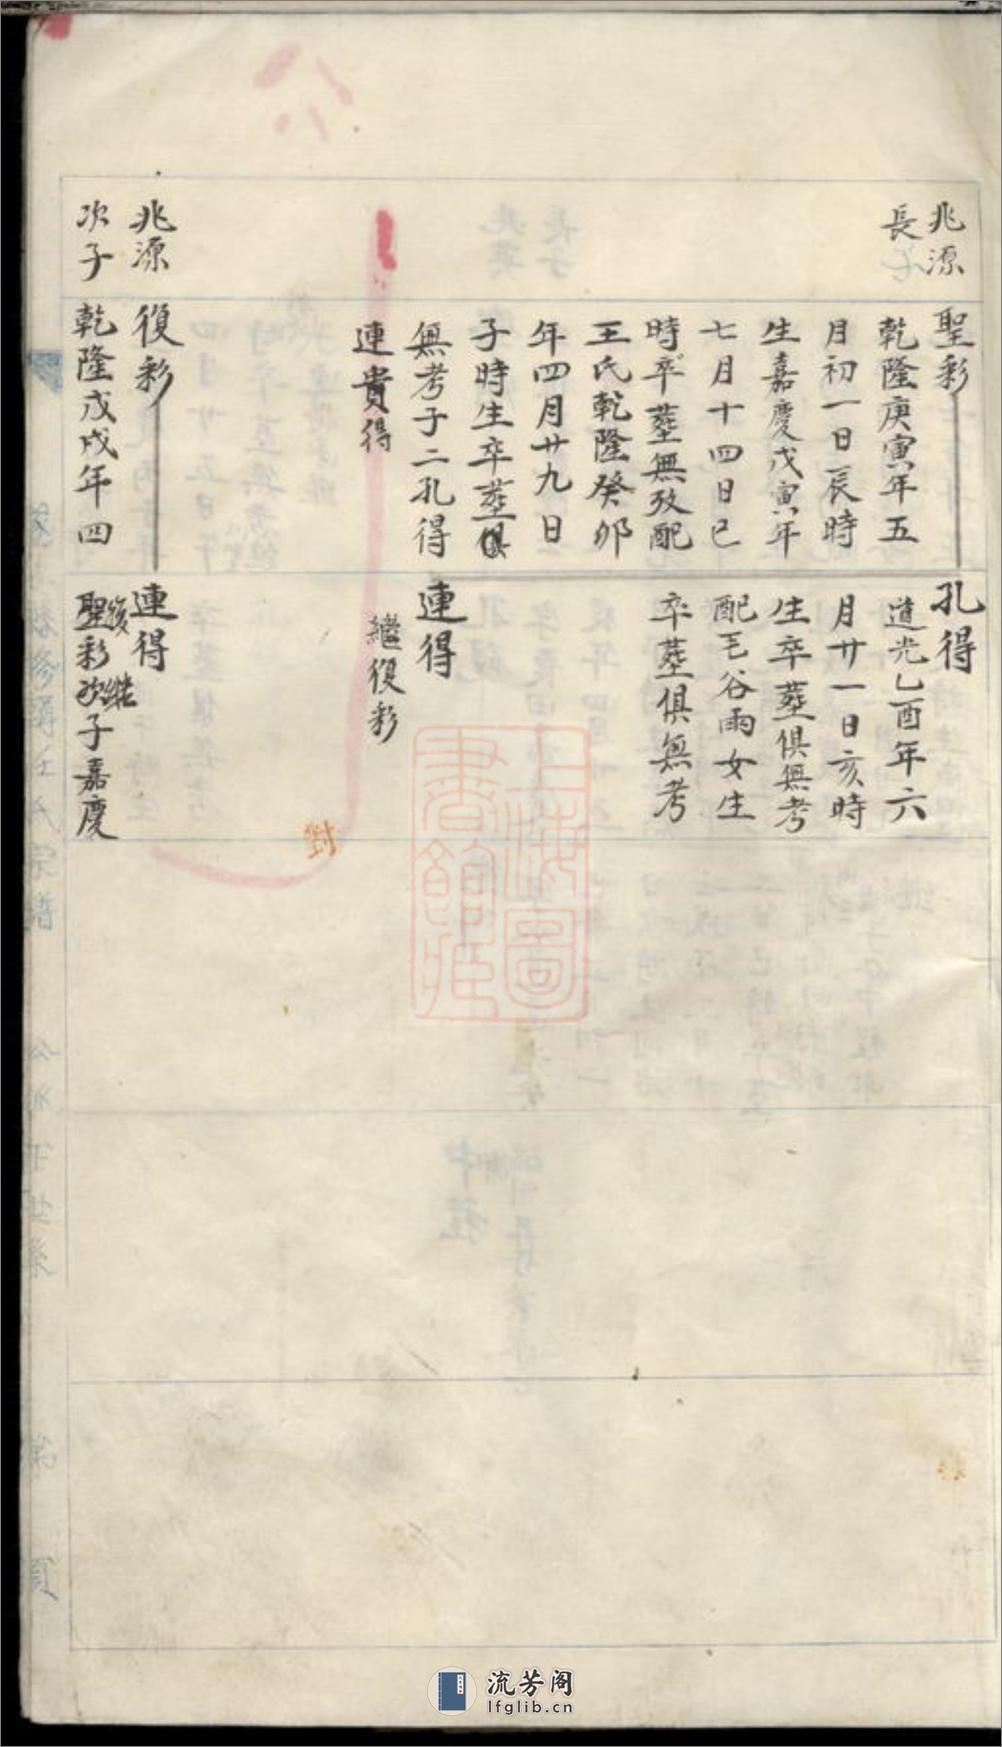 兆源
長子
聖彩
乾隆庚寅年五
月初一日辰時
生嘉慶戊寅年
七月十四日巳
時卒塟無攷配
王氏乾隆癸卯
年四月廿九日
子時生卒塟俱
無考子二孔得
連貴得
孔得
道光乙酉年六
月廿一日亥時
生卒塟俱無考
配毛谷雨女生
卒塟俱無考
連得
繼復彩
兆源
次子
復彩
乾隆戊戌年四
連得
聖彩次子嘉慶
上海圖
書館藏
宗譜
第
頁
流芳阁
lfglib.cn